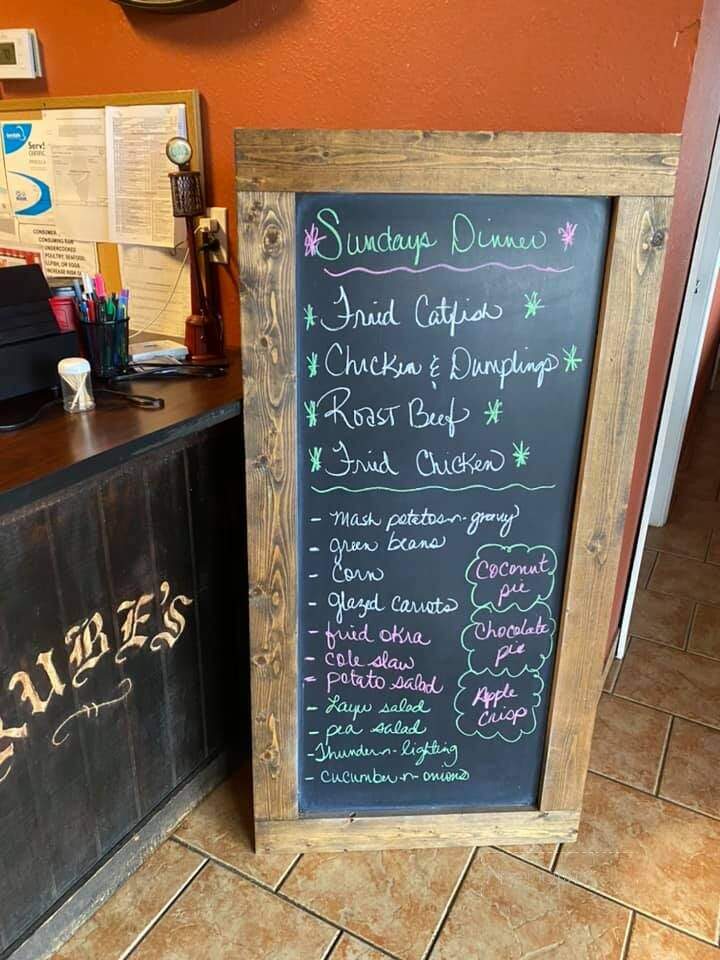 Sundays Dinner
Fried Catfish
Chicken & Dumplings
Roast Beef
Fried Chicken
- Mash potatos-n-gravy
- green beans
- Corn
- glazed carrots
- fried okra
- cole slaw
- potato salad
- Layer salad
- pea salad
- Thunder-n-lighting
- cucumber-n-onions
Coconut
pie
Chocolate
pie
Apple
Crisp
RUBE'S
Serv
CONSUMER
CONSUMING RAW
UNDERCOOKED
POULTRY, SEAFOOD,
OR EGGS
INCREASE RISK